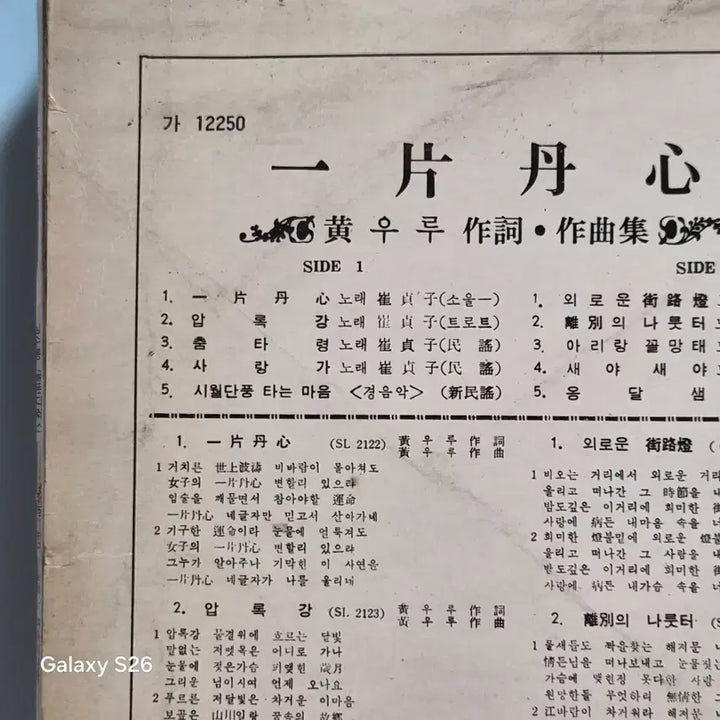 가 12250
一片丹心
黃우루 作詞·作曲集
SIDE 1
1. 一片丹心 노래 崔貞子(소울一)
2. 압록강 노래 崔貞子(트로트)
3. 춤타령 노래 崔貞子(民謠)
4. 사랑가 노래 崔貞子(民謠)
5. 시월단풍 타는 마음 <경음악> (新民謠)
SIDE
1. 외로운 街路燈
2. 離別의 나룻터
3. 아리랑 꼴망태
4. 새야 새야
5. 옹달샘
1. 一片丹心 (SL 2122) 黃우루 作詞
黃우루 作曲
1 거치른 世上波濤 비바람이 몰아쳐도
女子의 一片丹心 변할리 있으랴
입술을 깨물면서 참아야할 運命
一片丹心 네글자만 믿고서 산아가네
2 기구한 運命이라 눈물에 얼룩져도
女子의 一片丹心 변할리 있으랴
그누가 알아주나 기막힌 이 사연을
一片丹心 네글자가 나를 울리네
2. 압록강 (SL 2123) 黃우루 作詞
黃우루 作曲
1 압록강 물결위에 흐르는 달빛
말없는 저뗏목은 어디로 가나
눈물에 젖은가슴 피맺힌 歲月
그리운 님이시여 언제 오나요
2 푸르른 저달빛은 차거운 이마음
보고픈 山川일랑 꿈속의 故鄕
1. 외로운 街路燈
1 비오는 거리에서 외로운 거리
울리고 떠나간 그 時節을
밤도깊은 이거리에 희미한 街
사랑에 病든 내마음 속을
2 희미한 燈불밑에 외로운 燈불
울리고 떠나간 그 사랑을
밤도깊은 이거리에 희미한 街
사랑에 病든 내가슴 속을
2. 離別의 나룻터
1 물새들도 짝을찾는 해지문
情든님을 떠나보내고 눈물짓
가슴에 맺힌정 못다한 사랑
원망한들 무엇하리 無情한
2 江바람이 차거워라 해저문